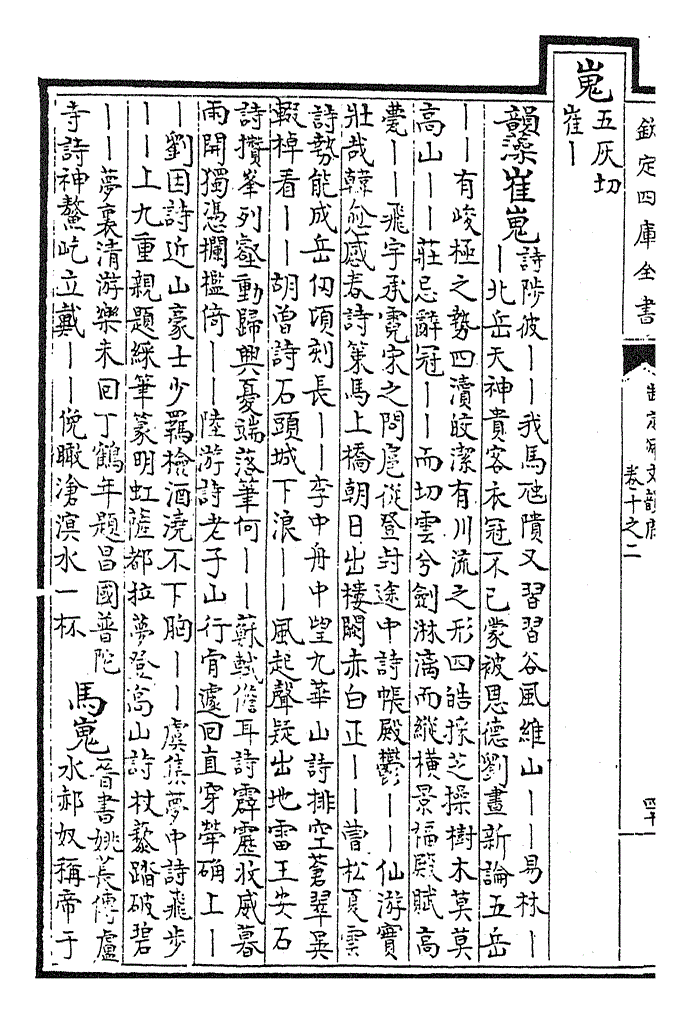 欽定四庫全書
卷十之二
四十
嵬
五灰切
崔｜
韻藻崔嵬
詩陟彼｜｜我馬虺隤又習習谷風維山｜｜易林｜
｜北岳天神貴客衣冠不已蒙被恩德劉晝新論五岳
｜｜有峻極之勢四瀆皎潔有川流之形四皓採芝操樹木莫莫
高山｜｜莊忌辭冠｜｜而切雲兮劍淋漓而縱橫景福殿賦高
甍｜｜飛宇承霓宋之問扈從登封途中詩帳殿鬱｜｜仙游寶
壯哉韓愈感春詩策馬上橋朝日出樓闕赤白正｜｜曹松夏雲
詩勢能成岳仞頃刻長｜｜李中舟中望九華山詩排空蒼翠異
輟棹看｜｜胡曾詩石頭城下浪｜｜風起聲疑出地雷王安石
詩攢峯列壑動歸興憂端落筆何｜｜蘇軾儋耳詩霹靂收威暮
雨開獨憑欄檻倚｜｜陸游詩老子山行肯遽回直穿犖确上｜
｜劉因詩近山豪士少羈檢酒澆不下胸｜｜虞集夢中詩飛步
｜｜上九重親題綵筆篆明虹薩都拉夢登高山詩杖藜踏破碧
｜｜夢裏清游樂未回丁鶴年題昌國普陀
寺詩神鰲屹立戴｜｜俛瞰滄溟水一杯
馬嵬
晉書姚萇傳盧
水郝奴稱帝于